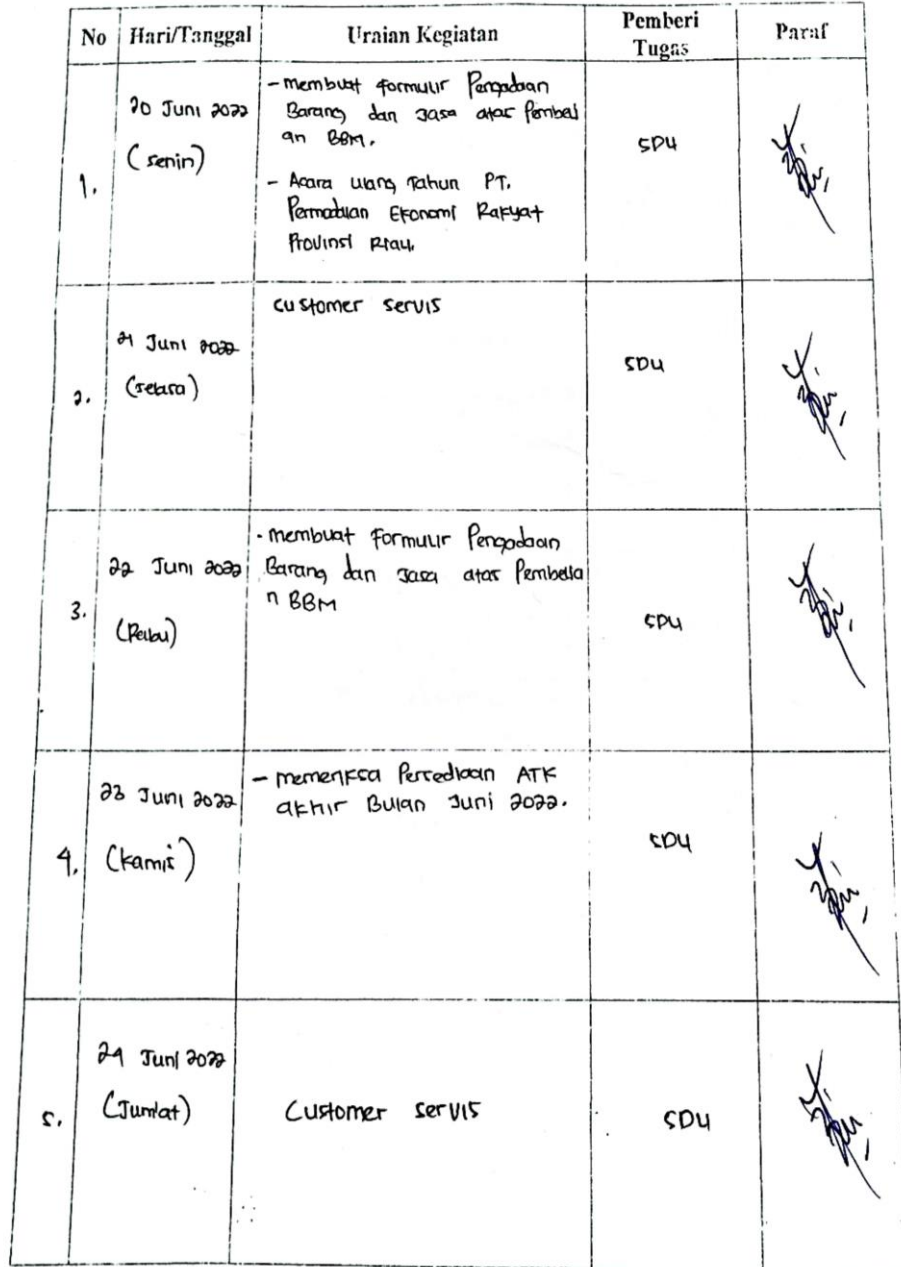 No Hari/Tanggal Uraian Kegiatan Pemberi Tugas Paraf
1.
20 Juni 2022
(senin)
- membuat Formulir Pengadaan
Barang dan Jasa atas Pembeli
an BBM.
- Acara ulang Tahun PT.
Permodalan Ekonomi Rakyat
Provinsi Riau.
SDU
2.
21 Juni 2022
(selasa)
customer servis
SDU
3.
22 Juni 2022
(Rabu)
- membuat Formulir Pengadaan
Barang dan Jasa atas Pembelia
n BBM
SDU
4.
23 Juni 2022
(kamis)
- memeriksa Persediaan ATK
akhir Bulan Juni 2022.
SDU
5.
24 Juni 2022
(Jum'at)
Customer servis
SDU